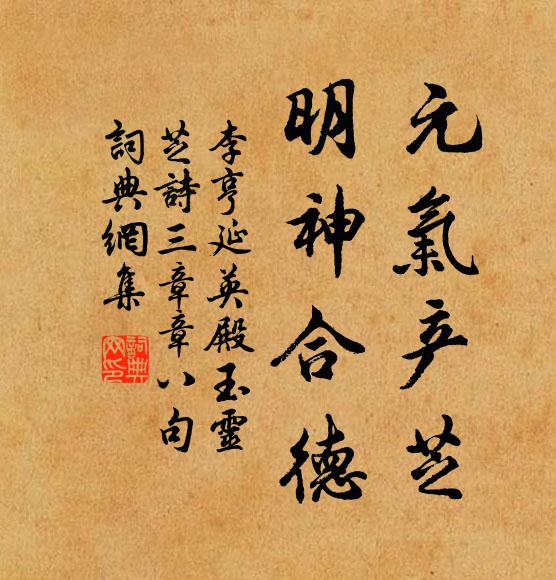 元氣产芝
明神合德
李亨延英殿玉靈
芝詩三章章八句
詞典網集
詞典
网印